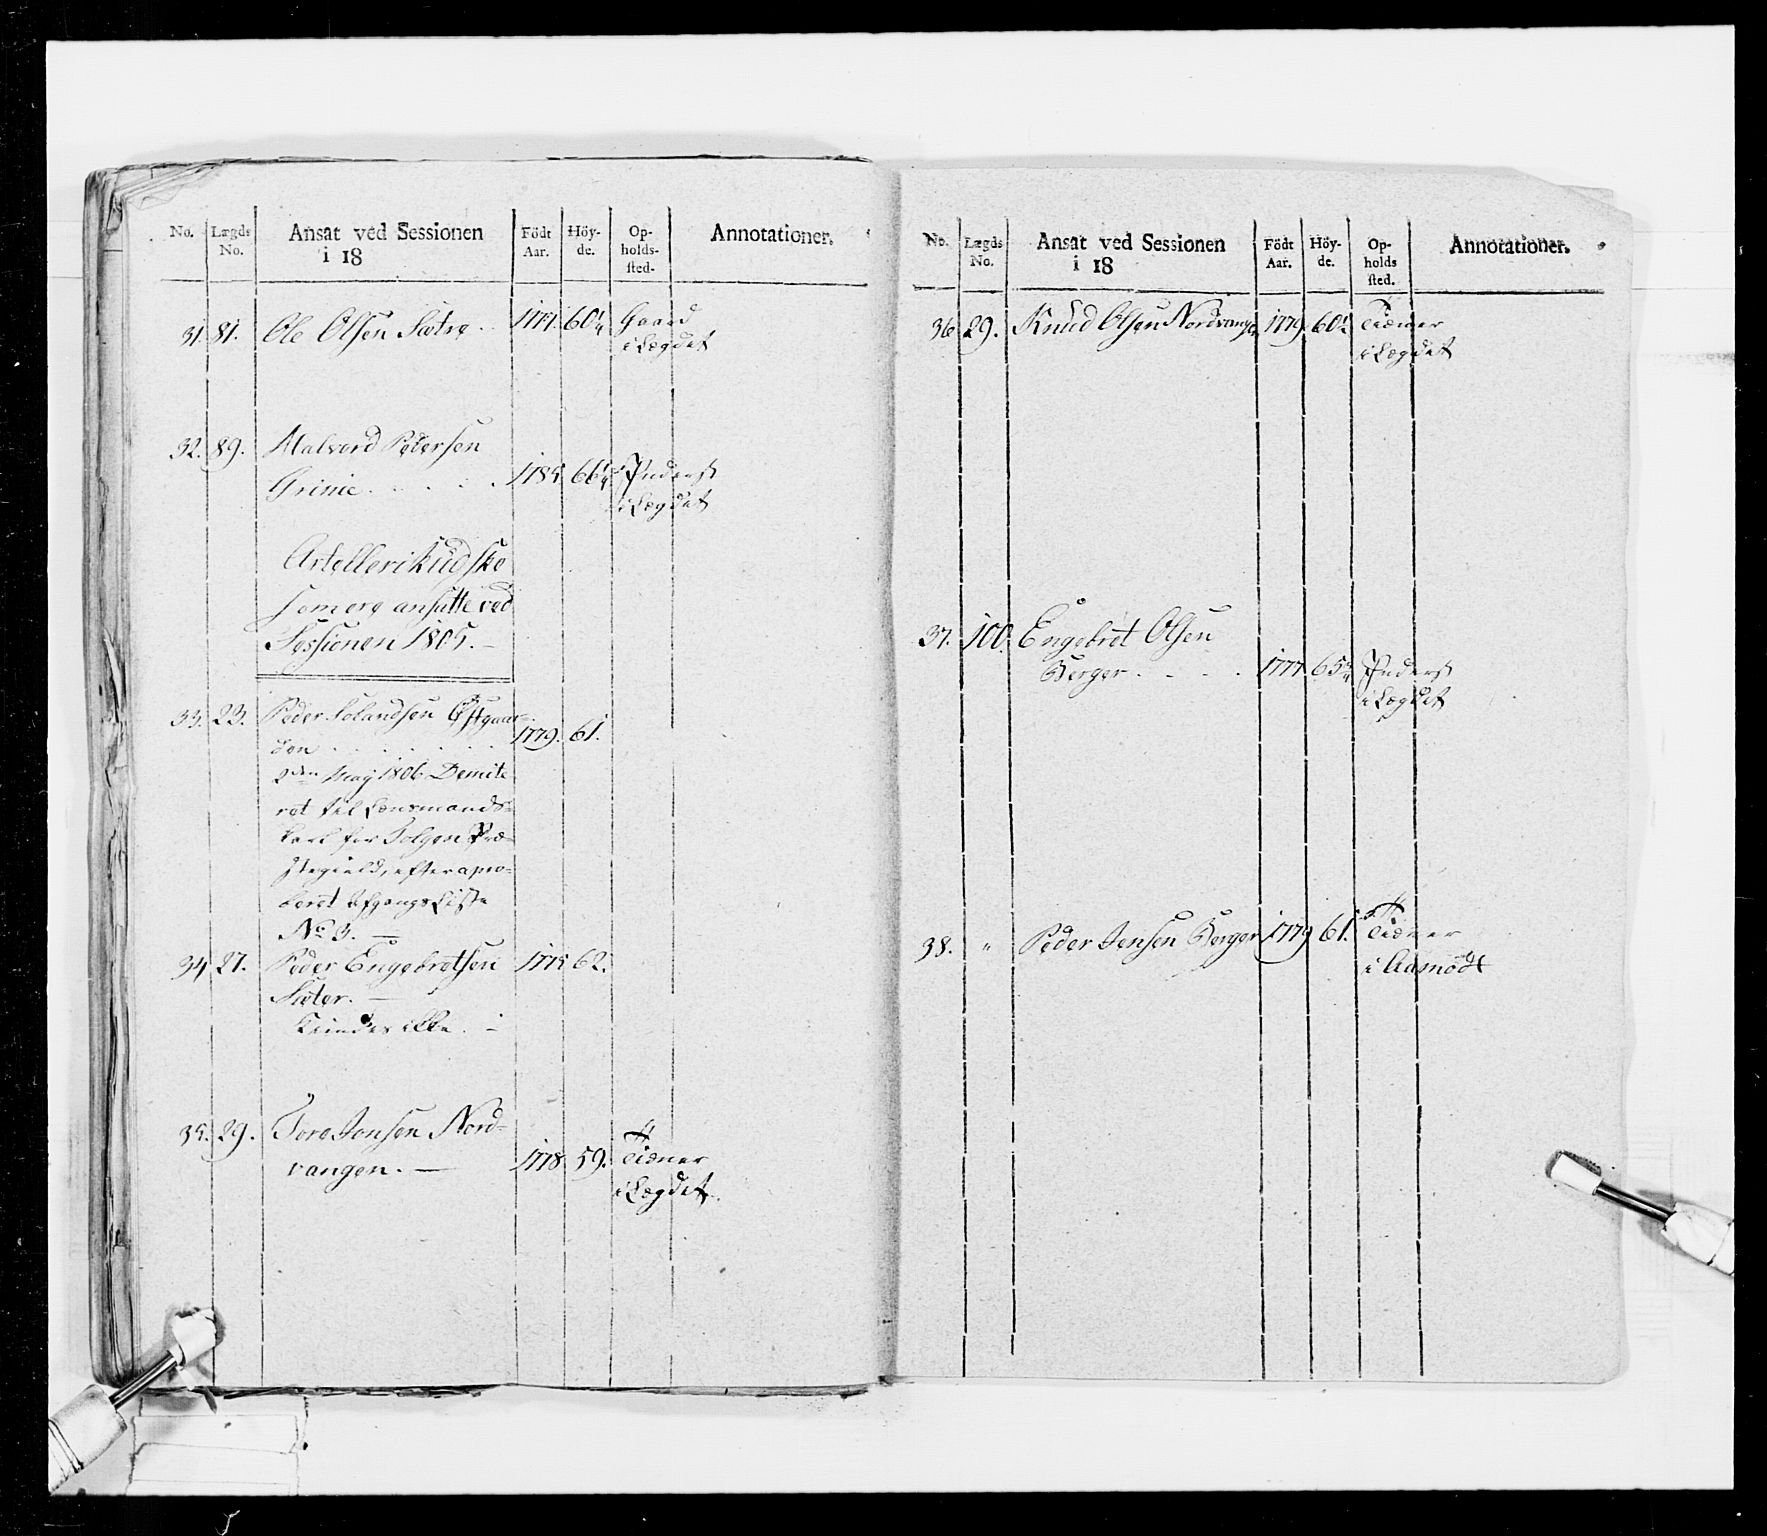 No. Lægds No. Ansat ved Sessionen i 18 Födt Aar. Höy-de. Op-holds-sted. Annotationer.
31. 81. Ole Olsen Sætre 60 1/4 Gaard
i Lægdet
32. 89. Halvord Pedersen
Grinie 1785 66 Inderst
i Lægdet
Artelleri Kudske
som ere ansatte ved
Sessionen 1805.
33. 23. Peder Østgaar-
den 1779. 61.
2den May 1806 Demite
ret til Lensmands-
karl for Tolgens Præ-
stegield, efter apro-
beret Afgangs Liste
No 3.
34 27. Peder Engebretsen 1775 62.
Sæter.
Kiendes ikke.
35. 29. Tore Jonsen Nord-
vangen. 1778 59. Tiæner
i Lægdet.
No. Lægds No. Ansat ved Sessionen i 18 Födt Aar. Höy-de. Op-holds sted. Annotationer.
36 29. Knud Olsen Nordvangen 1779. 60 Tiæner
i Lægdet
37. 100. Engebret Olsen
Berger 1777 65 Inderst
i Lægdet
38. " Peder Jensen Berger 1779 61. Tiæner
i Aamodt